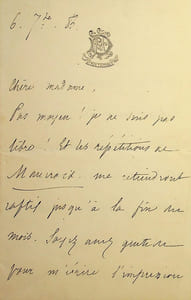 Chère madame,
Pas moyen! je ne suis pas
libre! Et les répétitions de
me retiendront
captif jusqu'à la fin du
mois. Soyez assez gentille
pour m'écrire l'impression